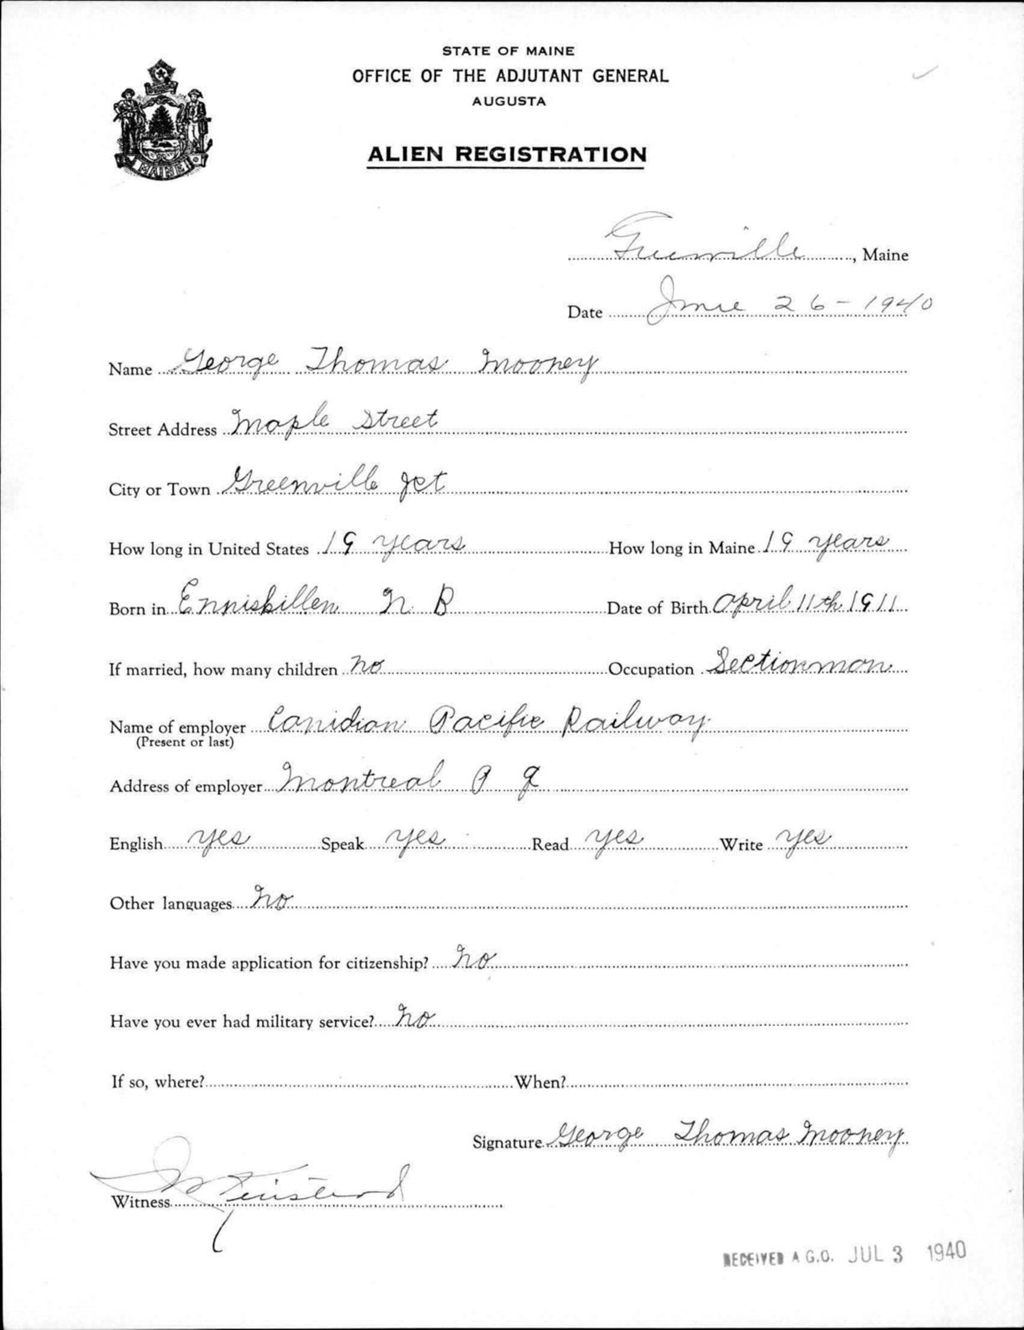 STATE OF MAINE
OFFICE OF THE ADJUTANT GENERAL
AUGUSTA
MAINE
ALIEN REGISTRATION
Greenville, Maine
Date June 26-1940
Name George Thomas Mooney
Street Address Maple Street
City or Town Greenville Jct
How long in United States 19 years How long in Maine 19 years
Born in Enniskillen N B Date of Birth April 11th 1911
If married, how many children no Occupation Sectionman
Name of employer Canidian Pacific Railway
(Present or last)
Address of employer Montreal P Q
English yes Speak yes Read yes Write yes
Other languages no
Have you made application for citizenship? no
Have you ever had military service? no
If so, where? When?
Signature George Thomas Mooney
Witness
RECEIVED A.G.O. JUL 3 1940